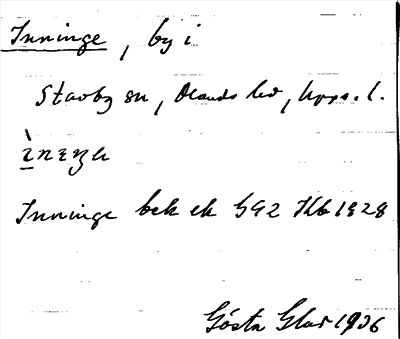 Inninge, by i
Stavby sn, Olands hd, Upps. l.
Inninge bek ek 592 Kb 1828
Gösta Glas 1936